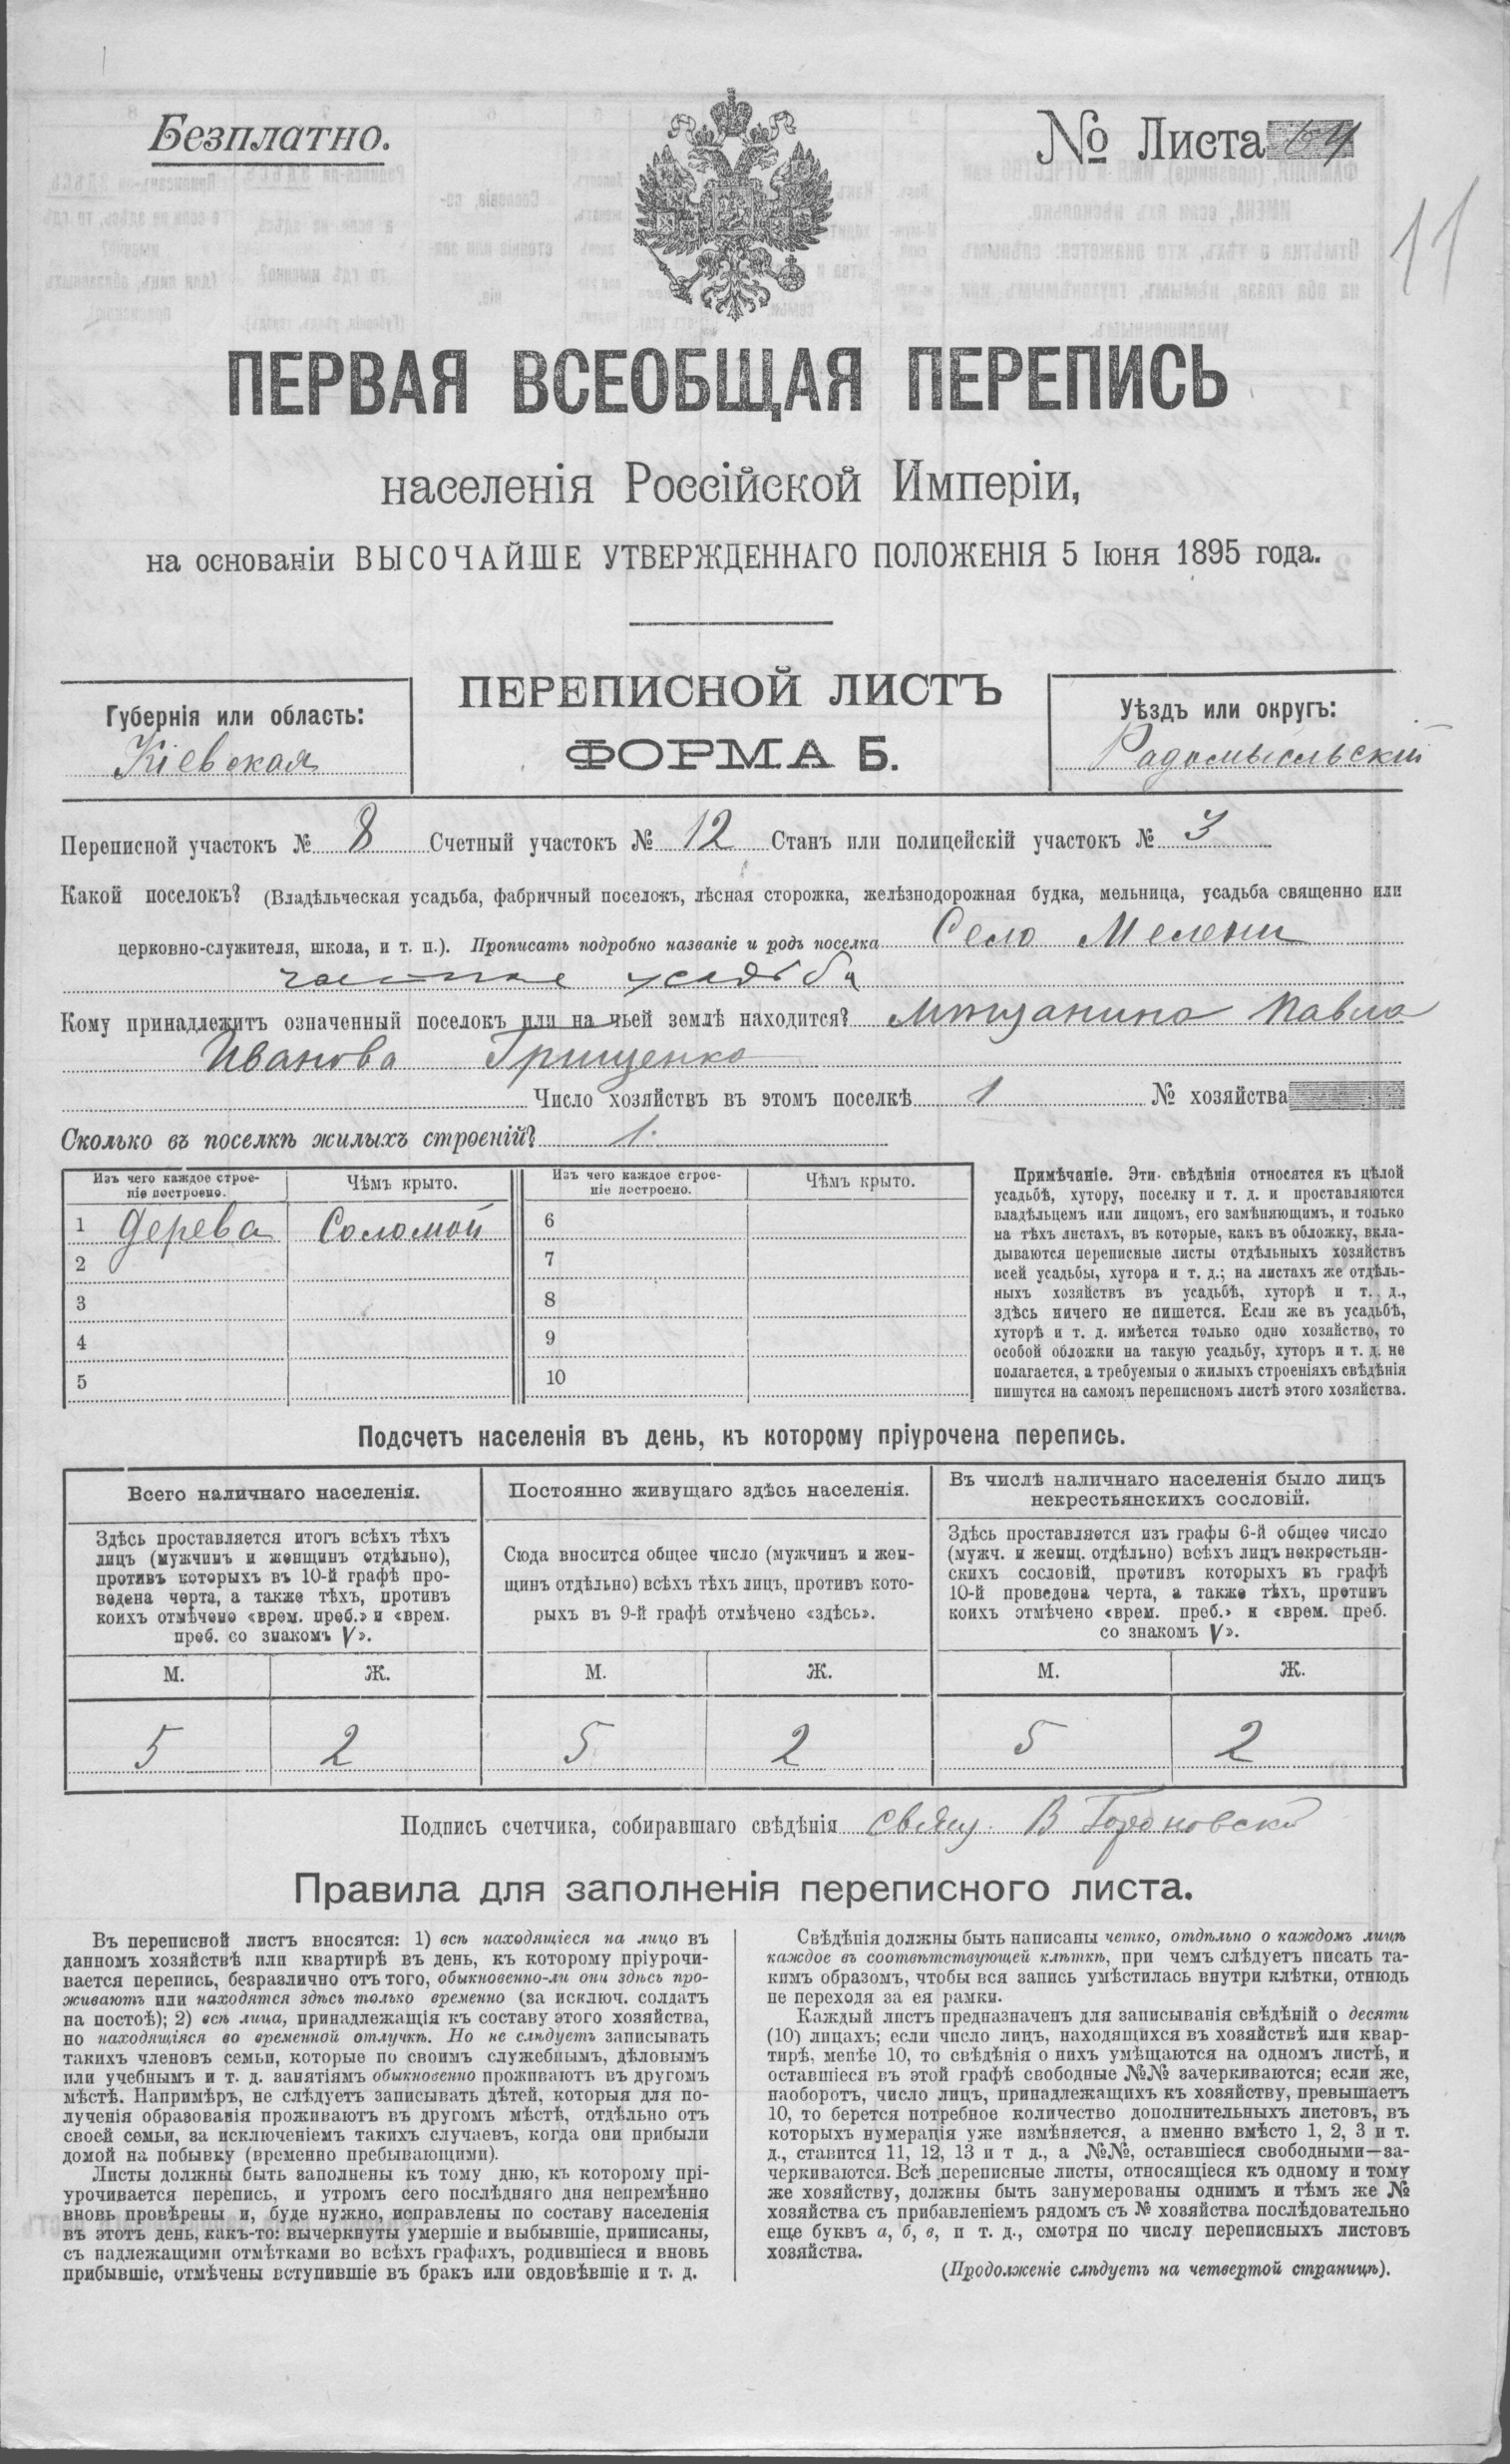 Безплатно.
№ Листа 64
11
ПЕРВАЯ ВСЕОБЩАЯ ПЕРЕПИСЬ
населенія Россійской Имперіи,
на основаніи ВЫСОЧАЙШЕ УТВЕРЖДЕННАГО ПОЛОЖЕНІЯ 5 Іюня 1895 года.
ПЕРЕПИСНОЙ ЛИСТЪ
ФОРМА Б.
Губернія или область:
Кіевская
Уѣздъ или округъ:
Радомысльскій
Переписной участокъ № 8 Счетный участокъ № 12 Станъ или полицейскій участокъ № 3
Какой поселокъ? (Владѣльческая усадьба, фабричный поселокъ, лѣсная сторожка, желѣзнодорожная будка, мельница, усадьба священно или
церковно-служителя, школа, и т. п.). Прописать подробно названіе и родъ поселка Село Мелени
усадьба
Кому принадлежитъ означенный поселокъ или на чьей землѣ находится? Мѣщанина Павла
Иванова Грищенко
Число хозяйствъ въ этомъ поселкѣ 1 № хозяйства
Сколько въ поселкѣ жилыхъ строеній? 1.
Изъ чего каждое строе-
ніе построено.
Чѣмъ крыто.
Изъ чего каждое строе-
ніе построено.
Чѣмъ крыто.
1 Дерева Соломой 6
2 7
3 8
4 9
5 10
Примѣчаніе. Эти свѣдѣнія относятся къ цѣлой
усадьбѣ, хутору, поселку и т. д. и проставляются
владѣльцемъ или лицомъ, его замѣняющимъ, и только
на тѣхъ листахъ, въ которые, какъ въ обложку, вкла-
дываются переписные листы отдѣльныхъ хозяйствъ
всей усадьбы, хутора и т. д.; на листахъ же отдѣль-
ныхъ хозяйствъ въ усадьбѣ, хуторѣ и т. д.,
здѣсь ничего не пишется. Если же въ усадьбѣ,
хуторѣ и т. д. имѣется только одно хозяйство, то
особой обложки на такую усадьбу, хуторъ и т. д. не
полагается, а требуемыя о жилыхъ строеніяхъ свѣдѣнія
пишутся на самомъ переписномъ листѣ этого хозяйства.
Подсчетъ населенія въ день, къ которому пріурочена перепись.
Всего наличнаго населенія.
Здѣсь проставляется итогъ всѣхъ тѣхъ
лицъ (мужчинъ и женщинъ отдѣльно),
противъ которыхъ въ 10-й графѣ про-
ведена черта, а также тѣхъ, противъ
коихъ отмѣчено «врем. преб.» и «врем.
преб. со знакомъ V».
М. Ж.
5 2
Постоянно живущаго здѣсь населенія.
Сюда вносится общее число (мужчинъ и жен-
щинъ отдѣльно) всѣхъ тѣхъ лицъ, противъ кото-
рыхъ въ 9-й графѣ отмѣчено «здѣсь».
М. Ж.
5 2
Въ числѣ наличнаго населенія было лицъ
некрестьянскихъ сословій.
Здѣсь проставляется изъ графы 6-й общее число
(мужч. и женщ. отдѣльно) всѣхъ лицъ некрестьян-
скихъ сословій, противъ которыхъ въ графѣ
10-й проведена черта, а также тѣхъ, противъ
коихъ отмѣчено «врем. преб.» и «врем. преб.
со знакомъ V».
М. Ж.
5 2
Подпись счетчика, собиравшаго свѣдѣнія свящ. В
Правила для заполненія переписного листа.
Въ переписной листъ вносятся: 1) всѣ находящіеся на лицо въ
данномъ хозяйствѣ или квартирѣ въ день, къ которому пріурочи-
вается перепись, безразлично отъ того, обыкновенно-ли они здѣсь про-
живаютъ или находятся здѣсь только временно (за исключ. солдатъ
на постоѣ); 2) всѣ лица, принадлежащія къ составу этого хозяйства,
но находящіяся во временной отлучкѣ. Но не слѣдуетъ записывать
такихъ членовъ семьи, которые по своимъ служебнымъ, дѣловымъ
или учебнымъ и т. д. занятіямъ обыкновенно проживаютъ въ другомъ
мѣстѣ. Напримѣръ, не слѣдуетъ записывать дѣтей, которыя для по-
лученія образованія проживаютъ въ другомъ мѣстѣ, отдѣльно отъ
своей семьи, за исключеніемъ такихъ случаевъ, когда они прибыли
домой на побывку (временно пребывающими).
Листы должны быть заполнены къ тому дню, къ которому прі-
урочивается перепись, и утромъ сего послѣдняго дня непремѣнно
вновь провѣрены и, буде нужно, исправлены по составу населенія
въ этотъ день, какъ-то: вычеркнуты умершіе и выбывшіе, приписаны,
съ надлежащими отмѣтками во всѣхъ графахъ, родившіеся и вновь
прибывшіе, отмѣчены вступившіе въ бракъ или овдовѣвшіе и т. д.
Свѣдѣнія должны быть написаны четко, отдѣльно о каждомъ лицѣ
каждое въ соотвѣтствующей клѣткѣ, при чемъ слѣдуетъ писать та-
кимъ образомъ, чтобы вся запись умѣстилась внутри клѣтки, отнюдь
не переходя за ея рамки.
Каждый листъ предназначенъ для записыванія свѣдѣній о десяти
(10) лицахъ; если число лицъ, находящихся въ хозяйствѣ или квар-
тирѣ, менѣе 10, то свѣдѣнія о нихъ умѣщаются на одномъ листѣ, и
оставшіеся въ этой графѣ свободные №№ зачеркиваются; если же,
наоборотъ, число лицъ, принадлежащихъ къ хозяйству, превышаетъ
10, то берется потребное количество дополнительныхъ листовъ, въ
которыхъ нумерація уже измѣняется, а именно вмѣсто 1, 2, 3 и т.
д., ставится 11, 12, 13 и т д., а №№, оставшіеся свободными—за-
черкиваются. Всѣ переписные листы, относящіеся къ одному и тому
же хозяйству, должны быть занумерованы однимъ и тѣмъ же №
хозяйства съ прибавленіемъ рядомъ съ № хозяйства послѣдовательно
еще буквъ а, б, в, и т. д., смотря по числу переписныхъ листовъ
хозяйства.
(Продолженіе слѣдуетъ на четвертой страницѣ).